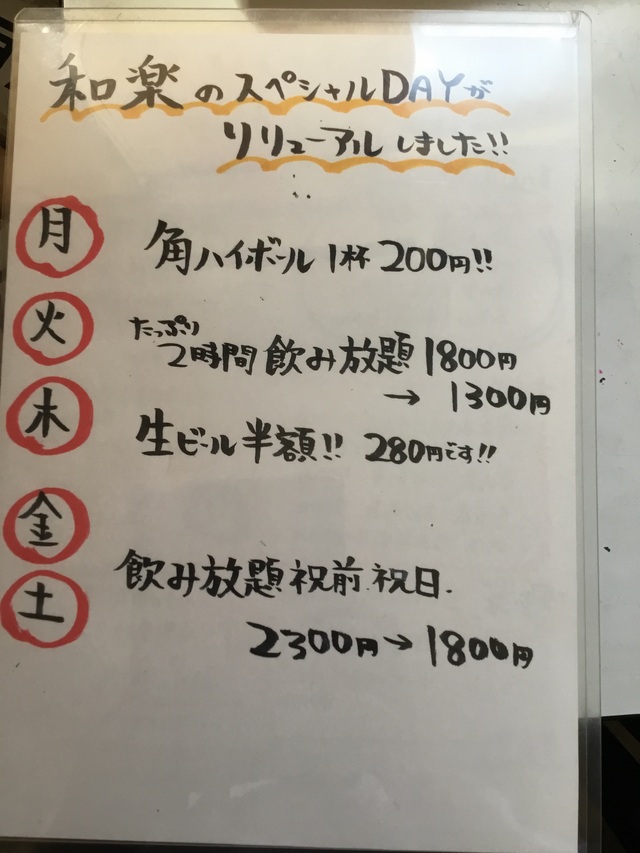 和楽のスペシャルDAYが
リリューアルしました!!
月 角ハイボール1杯200円!!
火 たっぷり
2時間飲み放題1800円
→ 1300円
木 生ビール半額!! 280円です!!
金
土 飲み放題祝前.祝日.
2300円→1800円